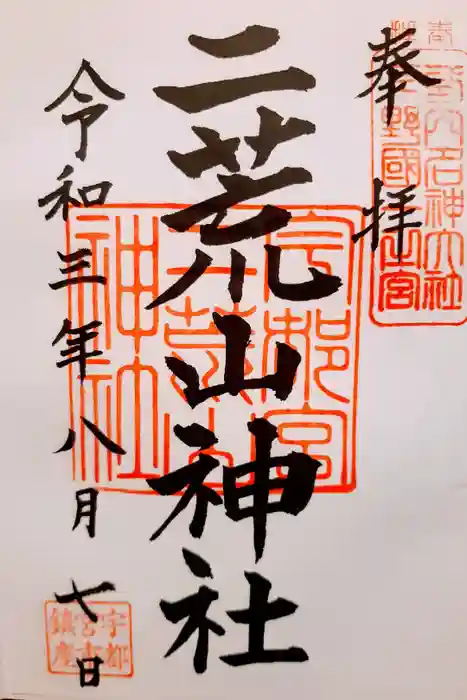 奉拝
延喜式内名神大社
下野國一之宮
二荒山神社
宇都宮二荒山神社
令和三年八月七日
宇都宮市鎮座